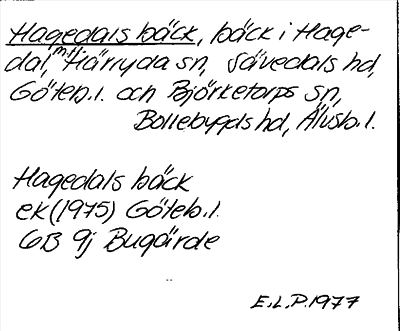 Hagedals bäck, bäck i Hage-
dal, m.fl. Härryda sn, Sävedals hd,
Göteb. l. och Björketorps sn,
Bollebygds hd, Älvsb. l.
Hagedals bäck
ek (1975) Göteb. l.
6B 9j Bugärde
E.L.P. 1977